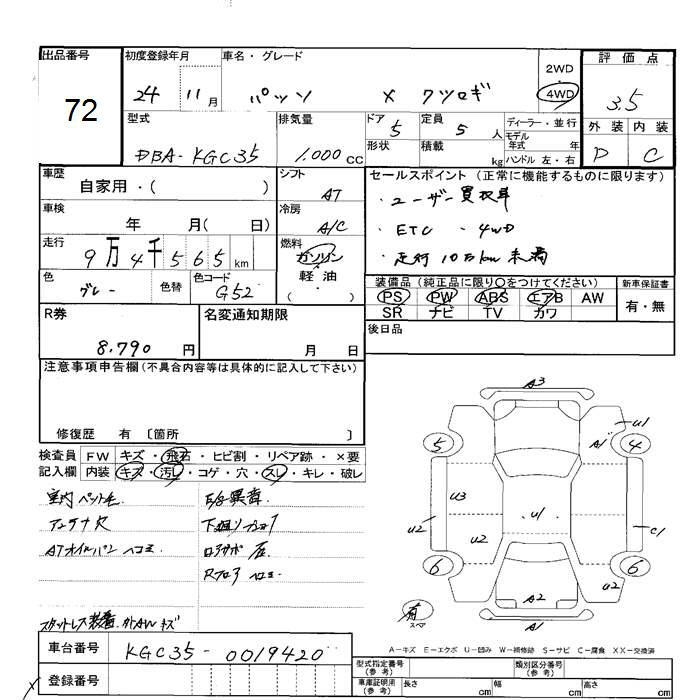 出品番号 初度登録年月 車名・グレード 2WD 評価点
72 24 11月 パッソ X クツロギ 4WD 3.5
型式 排気量 ドア 定員 ディーラー・並行 外装 内装
DBA-KGC35 1.000 CC 5 5 人 モデル年式 年 D C
形状 積載 kg ハンドル 左・右
車歴 シフト セールスポイント (正常に機能するものに限ります)
自家用・( ) AT ・ユーザー買取車
車検 冷房 ・ETC ・4WD
年 月( 日) A/C ・走行10万km未満
走行 燃料
9万4千565km ガソリン
軽油
( ・ )
色 色替 色コード 装備品 (純正品に限り○をつけてください) 新車保証書
グレー G52 PS PW ABS エアB AW 有・無
SR ナビ TV カワ
R券 名変通知期限 後日品
8.790 円 月 日
注意事項申告欄(不具合内容等は具体的に記入して下さい)
修復歴 有 〔箇所 〕
検査員 FW キズ・飛石・ヒビ割・リペア跡・×要
記入欄 内装 キズ・汚レ・コゲ・穴・スレ・キレ・破レ
室内ペット毛 E/g異音
アンテナ欠
ATオイルパンヘコミ
スタットレス装着
A3
U1
A1
5 4
U3
U1
U2 U2 C1
6 6
U2
A2
有
スペア
A1
A-キズ E-エクボ U-凹み W-補修跡 S-サビ C-腐食 XX-交換済
車台番号 KGC35-0019420
型式指定番号(参考) 類別区分番号(参考)
登録番号 車庫証明用(参考) 長さ cm 幅 cm 高さ cm